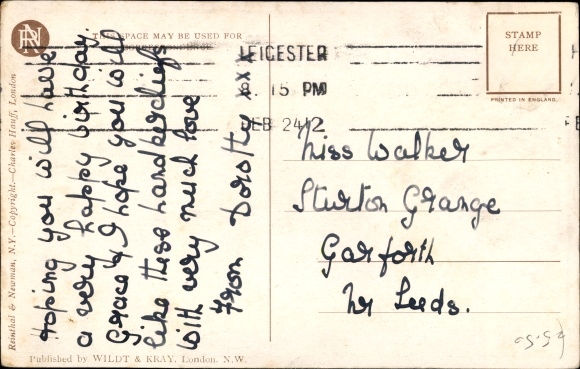 RN
THIS SPACE MAY BE USED FOR
CORRESPONDENCE
Hoping you will have
a very happy birthday.
Grace & I hope you will
like these handkerchiefs
with very much love
From Dorothy xxx
Reinthal & Newman, N.Y.—Copyright.—Charles Hauff, London
LEICESTER
15 PM
FEB 24 12
STAMP
HERE
PRINTED IN ENGLAND.
Miss Walker
Sturton Grange
Garforth
Nr Leeds.
Published by WILDT & KRAY, London. N.W.